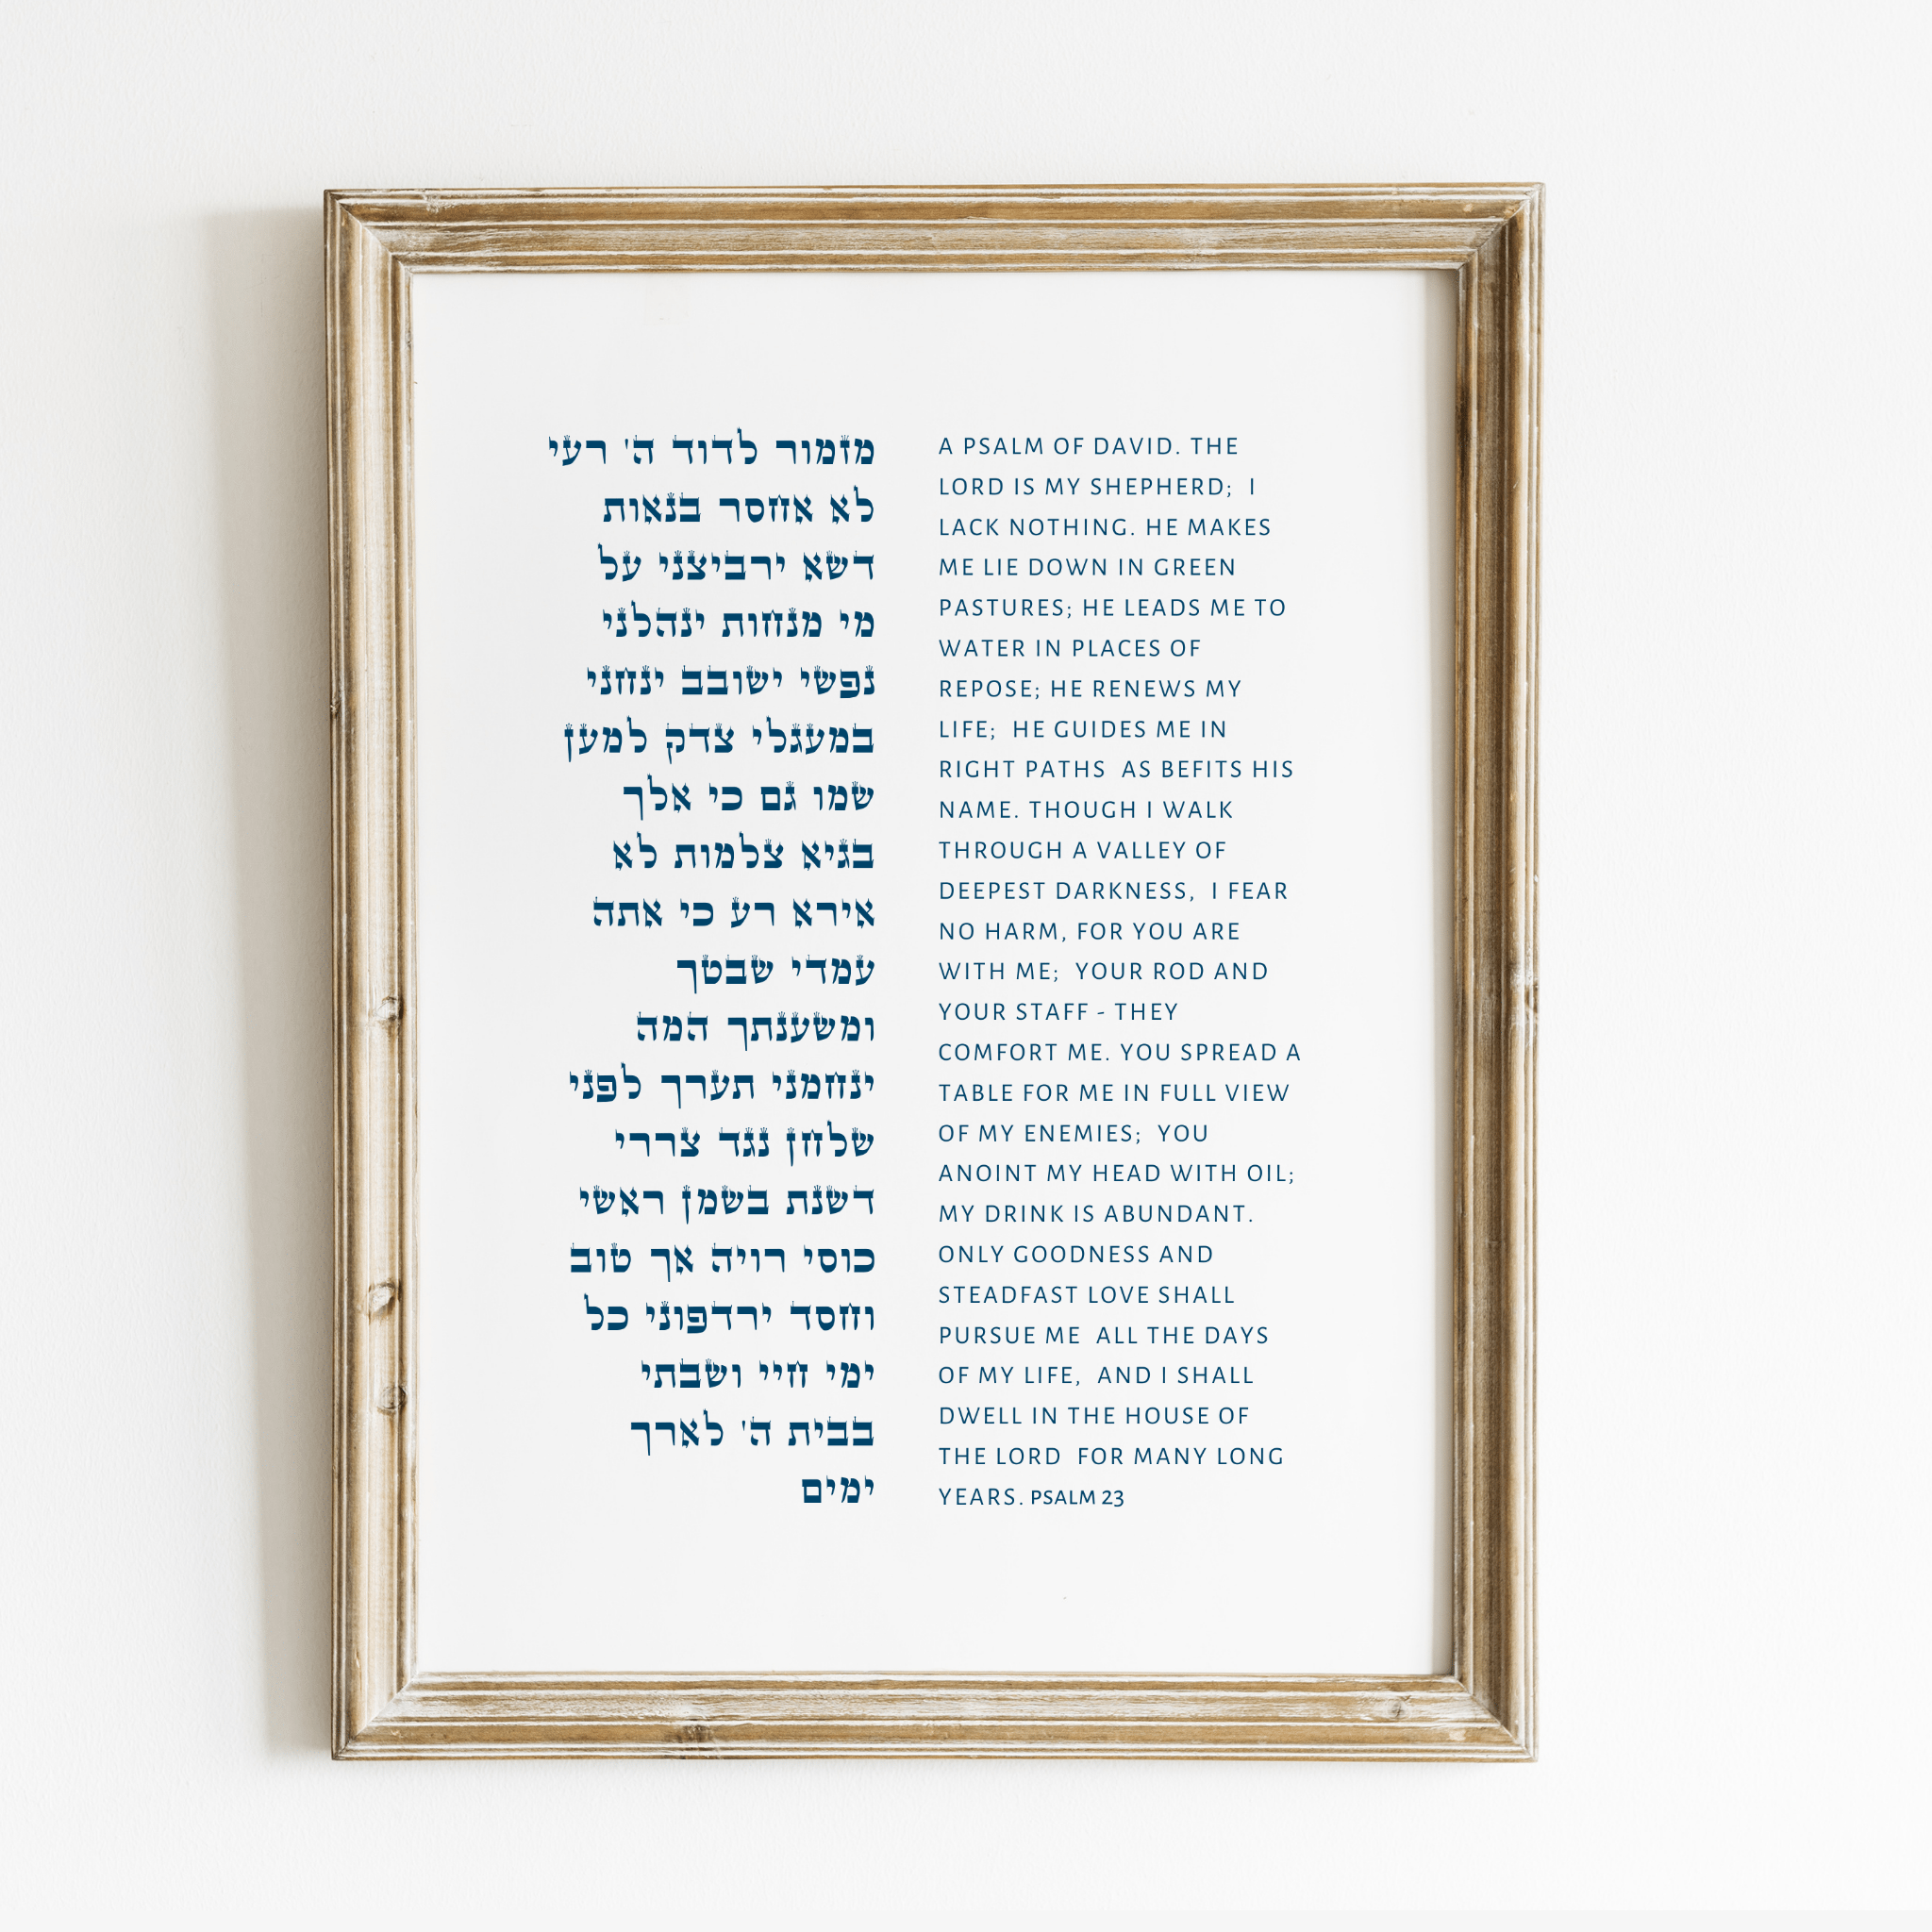 מזמור לדוד ה' רעי
לא אחסר בנאות
דשא ירביצני על
מי מנחות ינהלני
נפשי ישובב ינחני
במעגלי צדק למען
שמו גם כי אלך
בגיא צלמות לא
אירא רע כי אתה
עמדי שבטך
ומשענתך המה
ינחמני תערך לפני
שלחן נגד צררי
דשנת בשמן ראשי
כוסי רויה אך טוב
וחסד ירדפוני כל
ימי חיי ושבתי
בבית ה' לארך
ימים
A PSALM OF DAVID. THE
LORD IS MY SHEPHERD;  I
LACK NOTHING. HE MAKES
ME LIE DOWN IN GREEN
PASTURES; HE LEADS ME TO
WATER IN PLACES OF
REPOSE; HE RENEWS MY
LIFE;  HE GUIDES ME IN
RIGHT PATHS  AS BEFITS HIS
NAME. THOUGH I WALK
THROUGH A VALLEY OF
DEEPEST DARKNESS,  I FEAR
NO HARM, FOR YOU ARE
WITH ME;  YOUR ROD AND
YOUR STAFF - THEY
COMFORT ME. YOU SPREAD A
TABLE FOR ME IN FULL VIEW
OF MY ENEMIES;  YOU
ANOINT MY HEAD WITH OIL;
MY DRINK IS ABUNDANT.
ONLY GOODNESS AND
STEADFAST LOVE SHALL
PURSUE ME  ALL THE DAYS
OF MY LIFE,  AND I SHALL
DWELL IN THE HOUSE OF
THE LORD  FOR MANY LONG
YEARS. PSALM 23